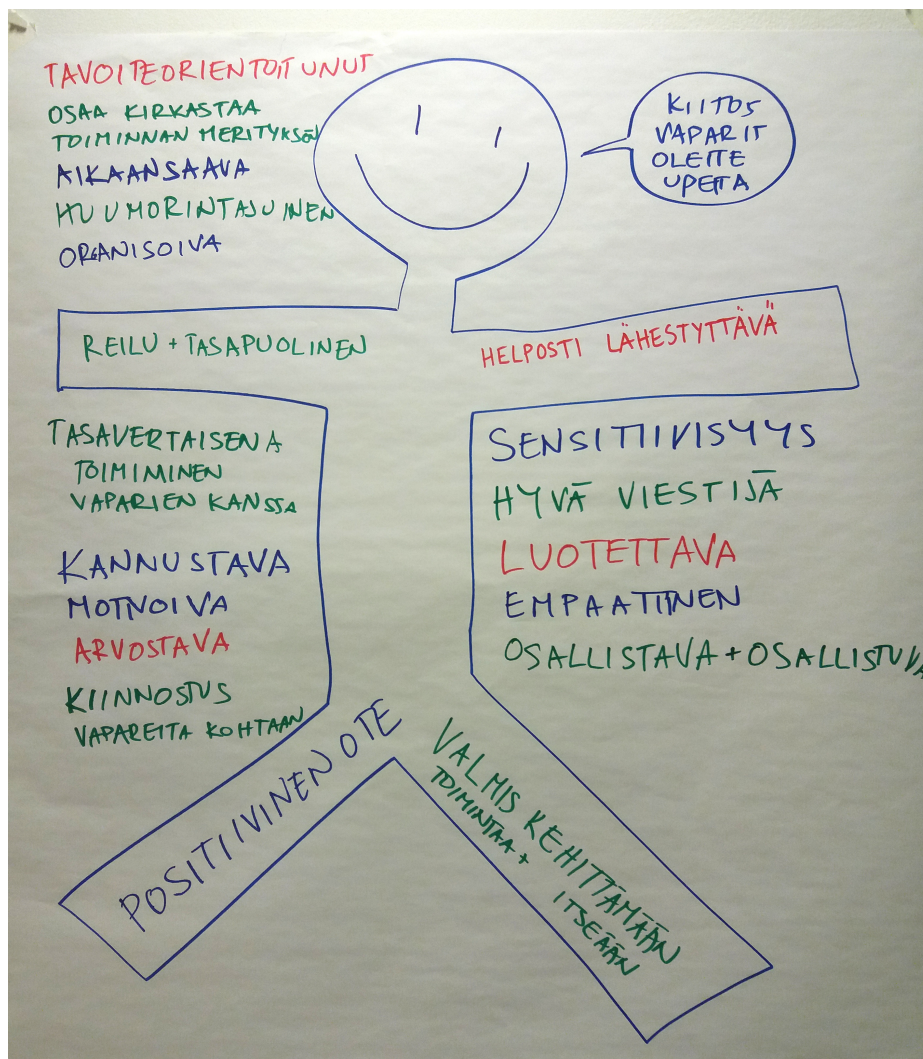 TAVOITEORIENTOITUNUT
OSAA KIRKASTAA
TOIMINNAN MERITYKSEN
AIKAANSAAVA
HUUMORINTAJUINEN
ORGANISOIVA
KIITOS
VAPARIT
OLETTE
UPEITA
REILU + TASAPUOLINEN
HELPOSTI LÄHESTYTTÄVÄ
TASAVERTAISENA
TOIMIMINEN
VAPARIEN KANSSA
KANNUSTAVA
MOTIVOIVA
ARVOSTAVA
KIINNOSTUS
VAPAREITA KOHTAAN
SENSITIIVISYYS
HYVÄ VIESTIJÄ
LUOTETTAVA
EMPAATTINEN
OSALLISTAVA + OSALLISTUVA
POSITIIVINEN OTE
VALMIS KEHITTÄMÄÄN
TOIMINTAA +
ITSEÄÄN